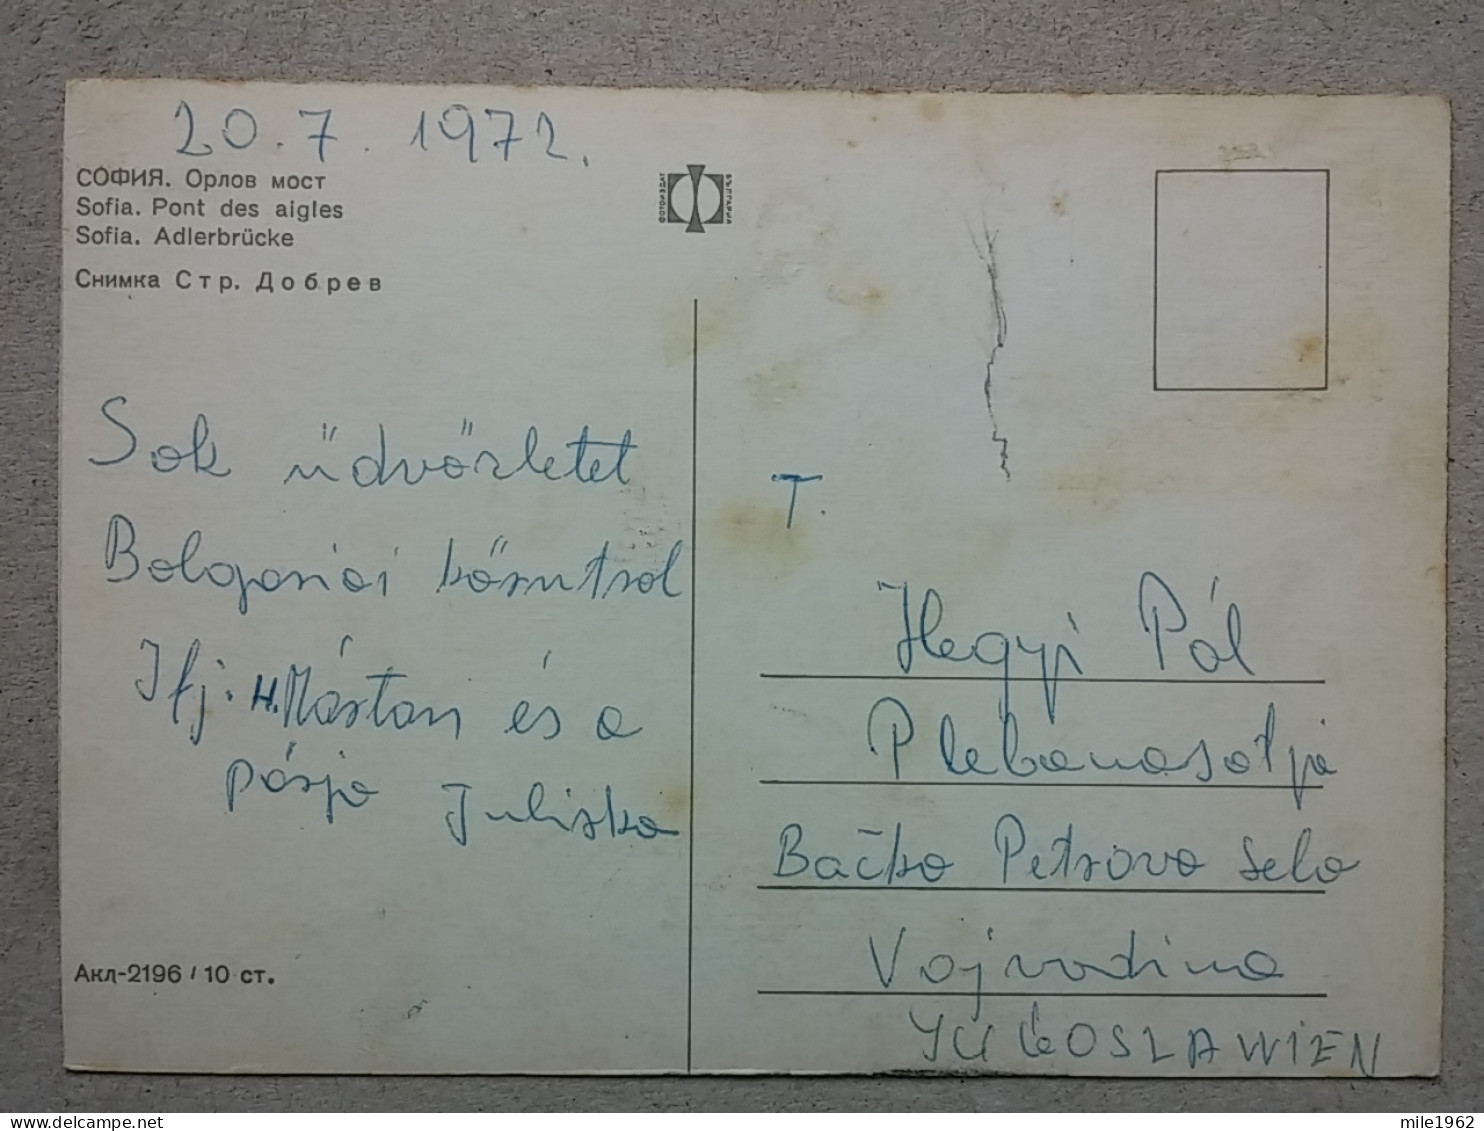 20.7.1972.
СОФИЯ. Орлов мост
Sofia. Pont des aigles
Sofia. Adlerbrücke
Снимка Стр. Добрев
ФОТОИЗДАТ
БЪЛГАРИЯ
Sok üdvözletet
Bolgariai körutrol
Ifj. H. Márton és a
párja Juliska
Акл-2196 / 10 ст.
T.
Hegyi Pál
Plebanosotja
Bačko Petrovo Selo
Vojvodina
JUGOSLAWIEN
mile1962